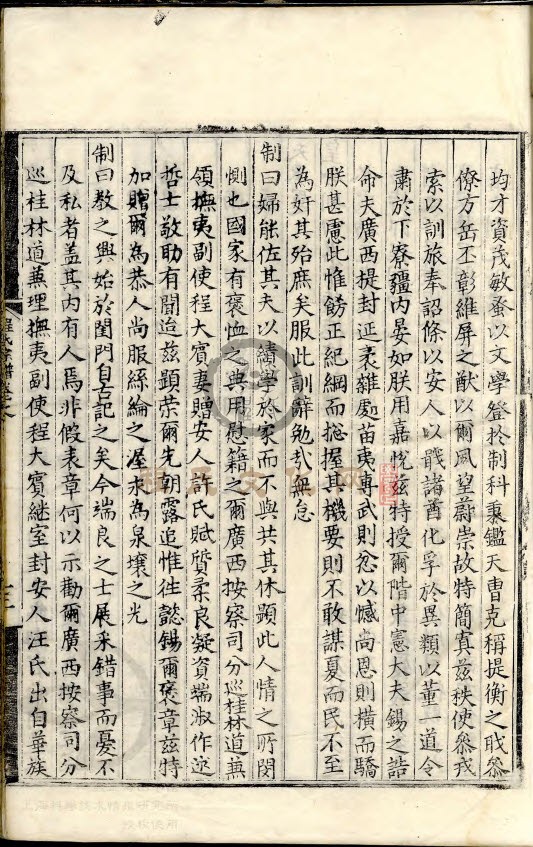 均才資茂敏蚤以文學登於制科秉鑑天曹克稱提衡之職叅
僚方岳丕彰維屏之猷以爾風望蔚崇故特簡寘兹秩使叅戎
索以訓旅奉詔條以安人以戢諸酋化孚於異類以董一道令
肅於下寮疆内晏如朕用嘉悅兹特授爾階中憲大夫錫之誥
命夫廣西提封延袤雜處苗夷專武則忿以憾尚恩則橫而驕
朕甚慮此惟飭正紀綱而揔握其機要則不敢謀夏而民不至
為奸其殆庶矣服此訓辭勉㢤無怠
制曰婦能佐其夫以績學於家而不與共其休顯此人情之所閔
惻也國家有褒恤之典用慰籍之爾廣西按察司分巡桂林道兼
領撫夷副使程大賓妻贈安人許氏賦質柔良凝資端淑作逑
哲士敬助有聞迨兹顯荣爾先朝露追惟徃懿錫爾褒章兹特
加贈爾為恭人尚服絲綸之渥永為泉壤之光
制曰教之興始於閨門自古記之矣今端良之士展采錯事而憂不
及私者盖其内有人焉非假表章何以示勸爾廣西按察司分
巡桂林道兼理撫夷副使程大賓継室封安人汪氏出自華族
程氏宗譜